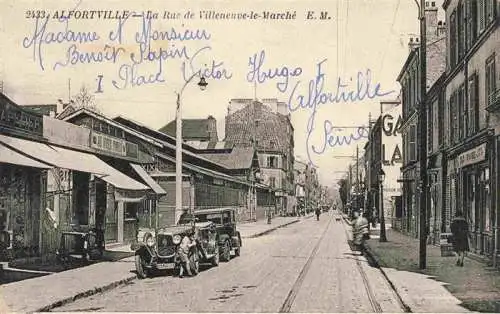 2433 ALFORTVILLE - La Rue de Villeneuve-le-Marché E. M.
Madame et Monsieur
Benoît Lapin
1 Place Victor Hugo
Alfortville
Seine
GA
LA